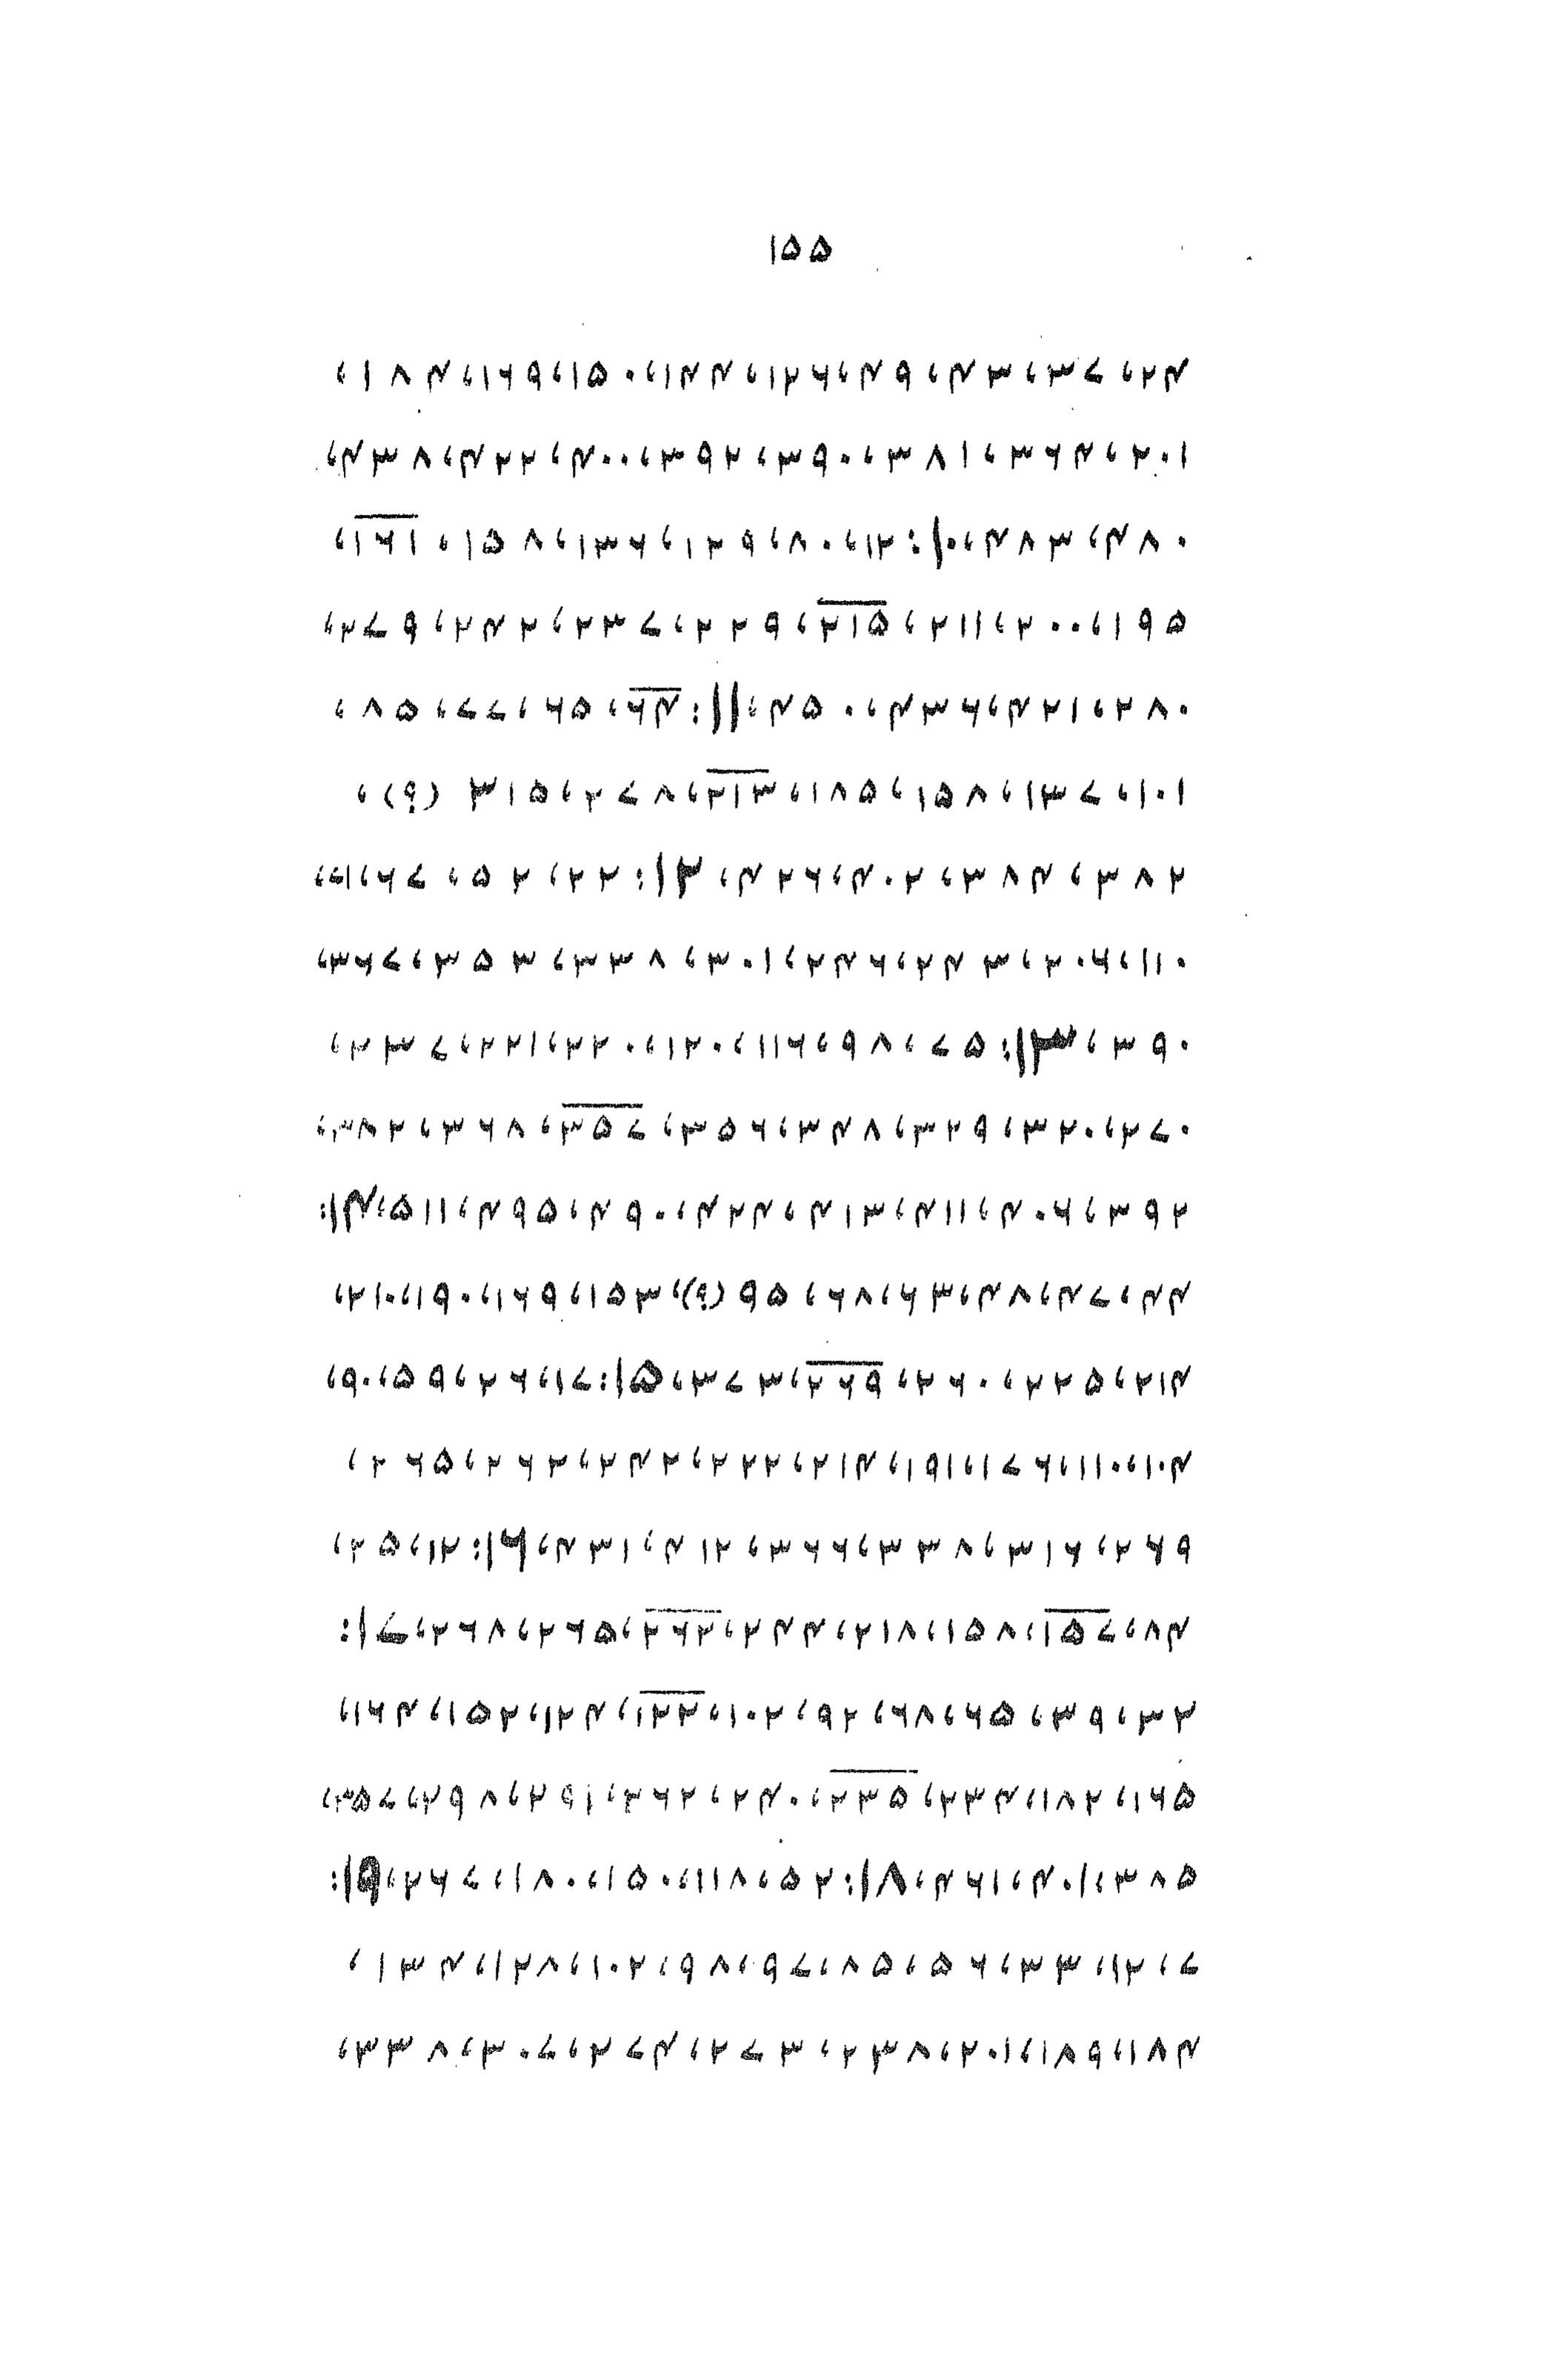 ۱۵۵
۲۴، ۳۷، ۴۳، ۴۹، ۱۲۶، ۱۴۴، ۱۵۰، ۱۶۹، ۱۸۴،
۲۰۱، ۳۶۴، ۳۸۱، ۳۹۰، ۳۹۲، ۴۰۰، ۴۲۲، ۴۳۸،
۴۸۰، ۴۸۳، ۱۰: ۱۲، ۸۰، ۱۲۹، ۱۳۶، ۱۵۸، ۱۶۱،
۱۹۵، ۲۰۰، ۲۱۱، ۲۱۵، ۲۲۹، ۲۳۷، ۲۴۲، ۲۷۹،
۲۸۰، ۴۲۱، ۴۳۶، ۴۵۰، ۱۱: ۶۴، ۶۵، ۷۷، ۸۵،
۱۰۱، ۱۳۷، ۱۵۸، ۱۸۵، ۲۱۳، ۲۷۸، ۳۱۵ (؟)،
۳۸۲، ۳۸۴، ۴۰۲، ۴۲۶، ۱۲: ۲۲، ۵۲، ۶۷، ۷۱،
۱۱۰، ۲۰۶، ۲۴۳، ۲۴۶، ۳۰۱، ۳۳۸، ۳۵۳، ۳۶۷،
۳۹۰، ۱۳: ۷۵، ۹۸، ۱۱۶، ۱۲۰، ۲۲۰، ۲۲۱، ۲۳۷،
۲۷۰، ۳۲۰، ۳۲۹، ۳۴۸، ۳۵۶، ۳۵۷، ۳۶۸، ۳۸۲،
۳۹۲، ۴۰۶، ۴۱۱، ۴۱۳، ۴۲۴، ۴۹۰، ۴۹۵، ۵۱۱، ۱۴:
۴۴، ۴۷، ۴۸، ۶۳، ۶۸، ۹۵ (؟)، ۱۵۳، ۱۶۹، ۱۹۰، ۲۱۰،
۲۱۴، ۲۲۵، ۲۶۰، ۲۶۹، ۳۷۳، ۱۵: ۱۷، ۲۶، ۵۹، ۹۰،
۱۰۴، ۱۱۰، ۱۷۶، ۱۹۱، ۲۱۴، ۲۲۲، ۲۴۲، ۲۶۲، ۲۶۵،
۲۶۹، ۳۱۶، ۳۳۸، ۳۶۶، ۴۱۲، ۴۳۱، ۱۶: ۱۲، ۲۵،
۸۴، ۱۵۷، ۱۵۸، ۲۱۸، ۲۴۴، ۲۶۲، ۲۶۵، ۲۶۸، ۱۷:
۳۲، ۳۹، ۶۵، ۶۸، ۹۲، ۱۰۲، ۱۲۲، ۱۲۴، ۱۵۲، ۱۶۴،
۱۶۵، ۱۸۲، ۲۳۴، ۲۳۵، ۲۴۰، ۲۶۲، ۲۹۱، ۲۹۸، ۳۵۷،
۳۸۵، ۴۰۱، ۴۶۱، ۱۸: ۵۲، ۱۱۸، ۱۵۰، ۱۸۰، ۲۶۷، ۱۹:
۷، ۱۲، ۳۳، ۵۶، ۸۵، ۹۷، ۹۸، ۱۰۲، ۱۲۸، ۱۳۴،
۱۸۴، ۱۸۹، ۲۰۱، ۲۳۸، ۲۷۳، ۲۷۴، ۳۰۷، ۳۳۸،